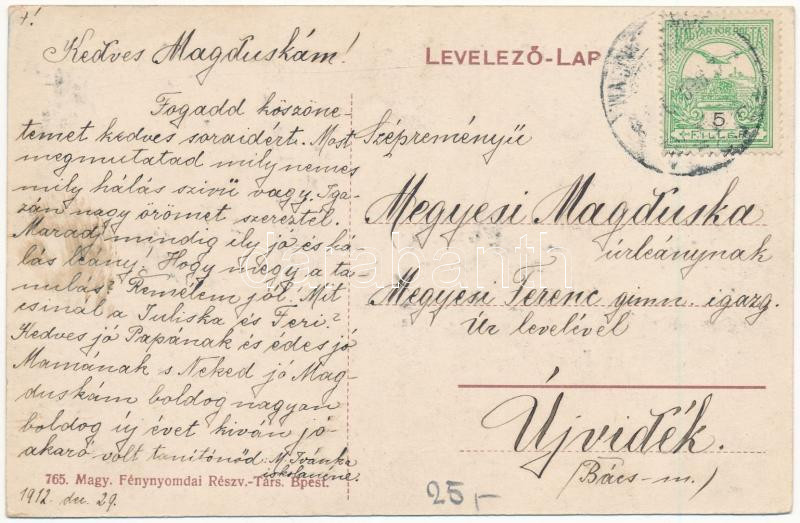 Kedves Magduskám!
Fogadd köszöne-
temet kedves soraidért. Most
megmutatad mily nemes
mily hálás szivü vagy. Iga-
zán nagy örömet szereztél.
Maradj mindig ily jó és há-
lás leány! Hogy megy a ta-
nulás? Remélem jól! Mit
csinál a Juliska és Feri?
Kedves jó Papának és édes jó
Mamának s Neked jó Mag-
duskám boldog nagyon
boldog új évet kiván jó-
akaró volt tanítónőd: M. Ivánka
765. Magy. Fénynyomdai Részv.-Társ. Bpest.
1912. dec. 29.
LEVELEZŐ-LAP
MAGYAR KIR. POSTA
5
FILLÉR
Szépreményü
Megyesi Magduska
úrleánynak
Megyesi Ferenc gimn. igazg.
Úr levelével
Újvidék.
(Bács-m.)
25,-
darabanth